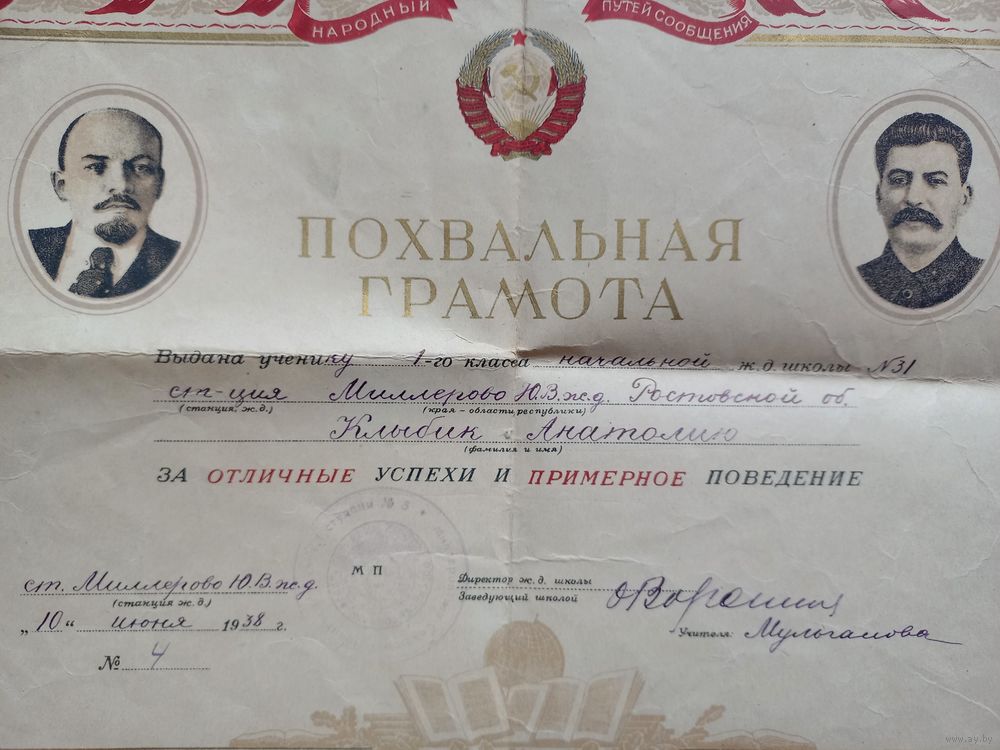 НАРОДНЫЙ
ПУТЕЙ СООБЩЕНИЯ
ПОХВАЛЬНАЯ
ГРАМОТА
Выдана ученику 1-го класса начальной ж.д. школы №31
ст-ция Миллерово Ю.В.ж.д. Ростовской об.
(станция, ж.д.) (края-области, республики)
Клыбик Анатолию
(фамилия и имя)
ЗА ОТЛИЧНЫЕ УСПЕХИ И ПРИМЕРНОЕ ПОВЕДЕНИЕ
№ 5
М П
ст. Миллерово Ю.В.ж.д.
(станция ж.д.)
„10“ июня 1938 г.
№ 4
Директор ж.д. школы
Заведующий школой
Учитель:
www.ay.by